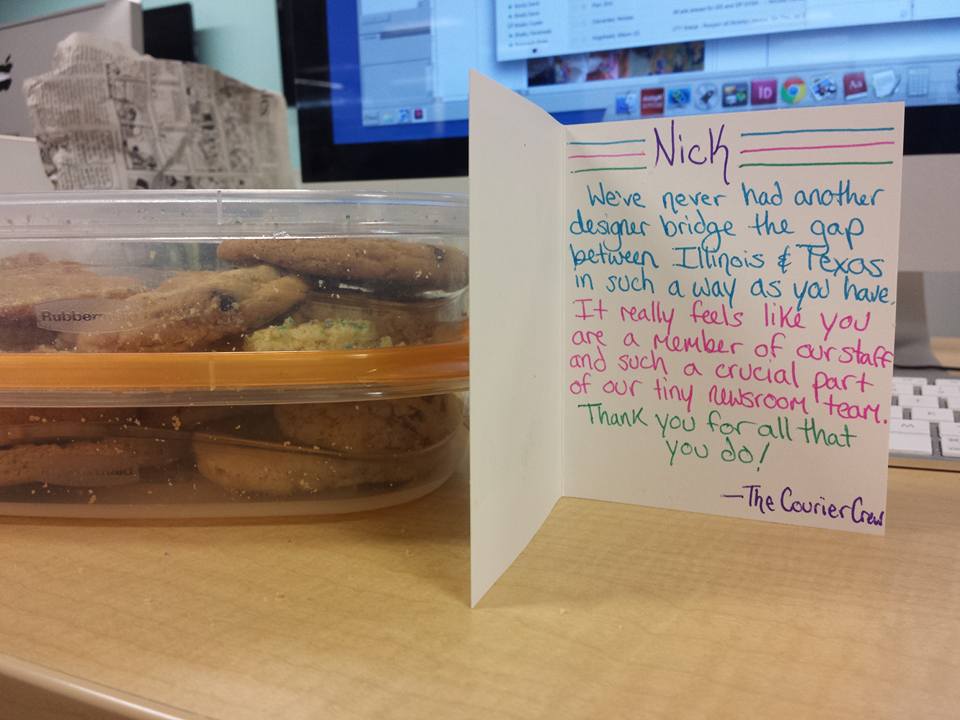 Nick
We've never had another
designer bridge the gap
between Illinois & Texas
in such a way as you have.
It really feels like you
are a member of our staff
and such a crucial part
of our tiny newsroom team.
Thank you for all that
you do!
—The Courier Crew
Rubbermaid
ID
Aa